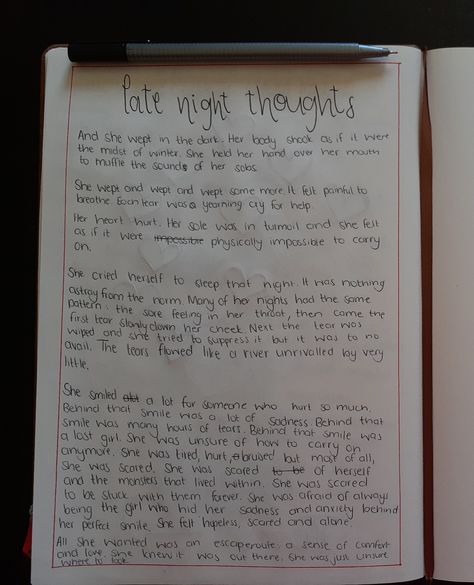 late night thoughts
And she wept in the dark. Her body shook as if it were
the midst of winter. She held her hand over her mouth
to muffle the sounds of her sobs.
She wept and wept and wept some more. It felt painful to
breathe. Each tear was a yearning cry for help.
Her heart hurt. Her sole was in turmoil and she felt
as if it were impossible physically impossible to carry
on.
She cried herself to sleep that night. It was nothing
astray from the norm. Many of her nights had the same
pattern: the sore feeling in her throat, then came the
first tear slowly down her cheek. Next the tear was
wiped and she tried to suppress it but it was to no
avail. The tears flowed like a river unrivalled by very
little.
She smiled a lot for someone who hurt so much.
Behind that smile was a lot of sadness. Behind that
smile was many hours of tears. Behind that smile was
a lost girl. She was unsure of how to carry on
anymore. She was tired, hurt, bruised but most of all,
she was scared. She was scared to be of herself
and the monsters that lived within. She was scared
to be stuck with them forever. She was afraid of always
being the girl who hid her sadness and anxiety behind
her perfect smile. She felt hopeless, scared and alone.
All she wanted was an escaperoute. a sense of comfort
and love. She knew it was out there. She was just unsure
where to look.